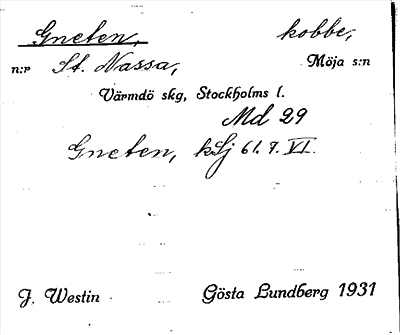 Gneten, kobbe,
n:r St. Nassa, Möja s:n
Värmdö skg, Stockholms l.
Md 29
Gneten, kSj 61.7.VI.
J. Westin Gösta Lundberg 1931